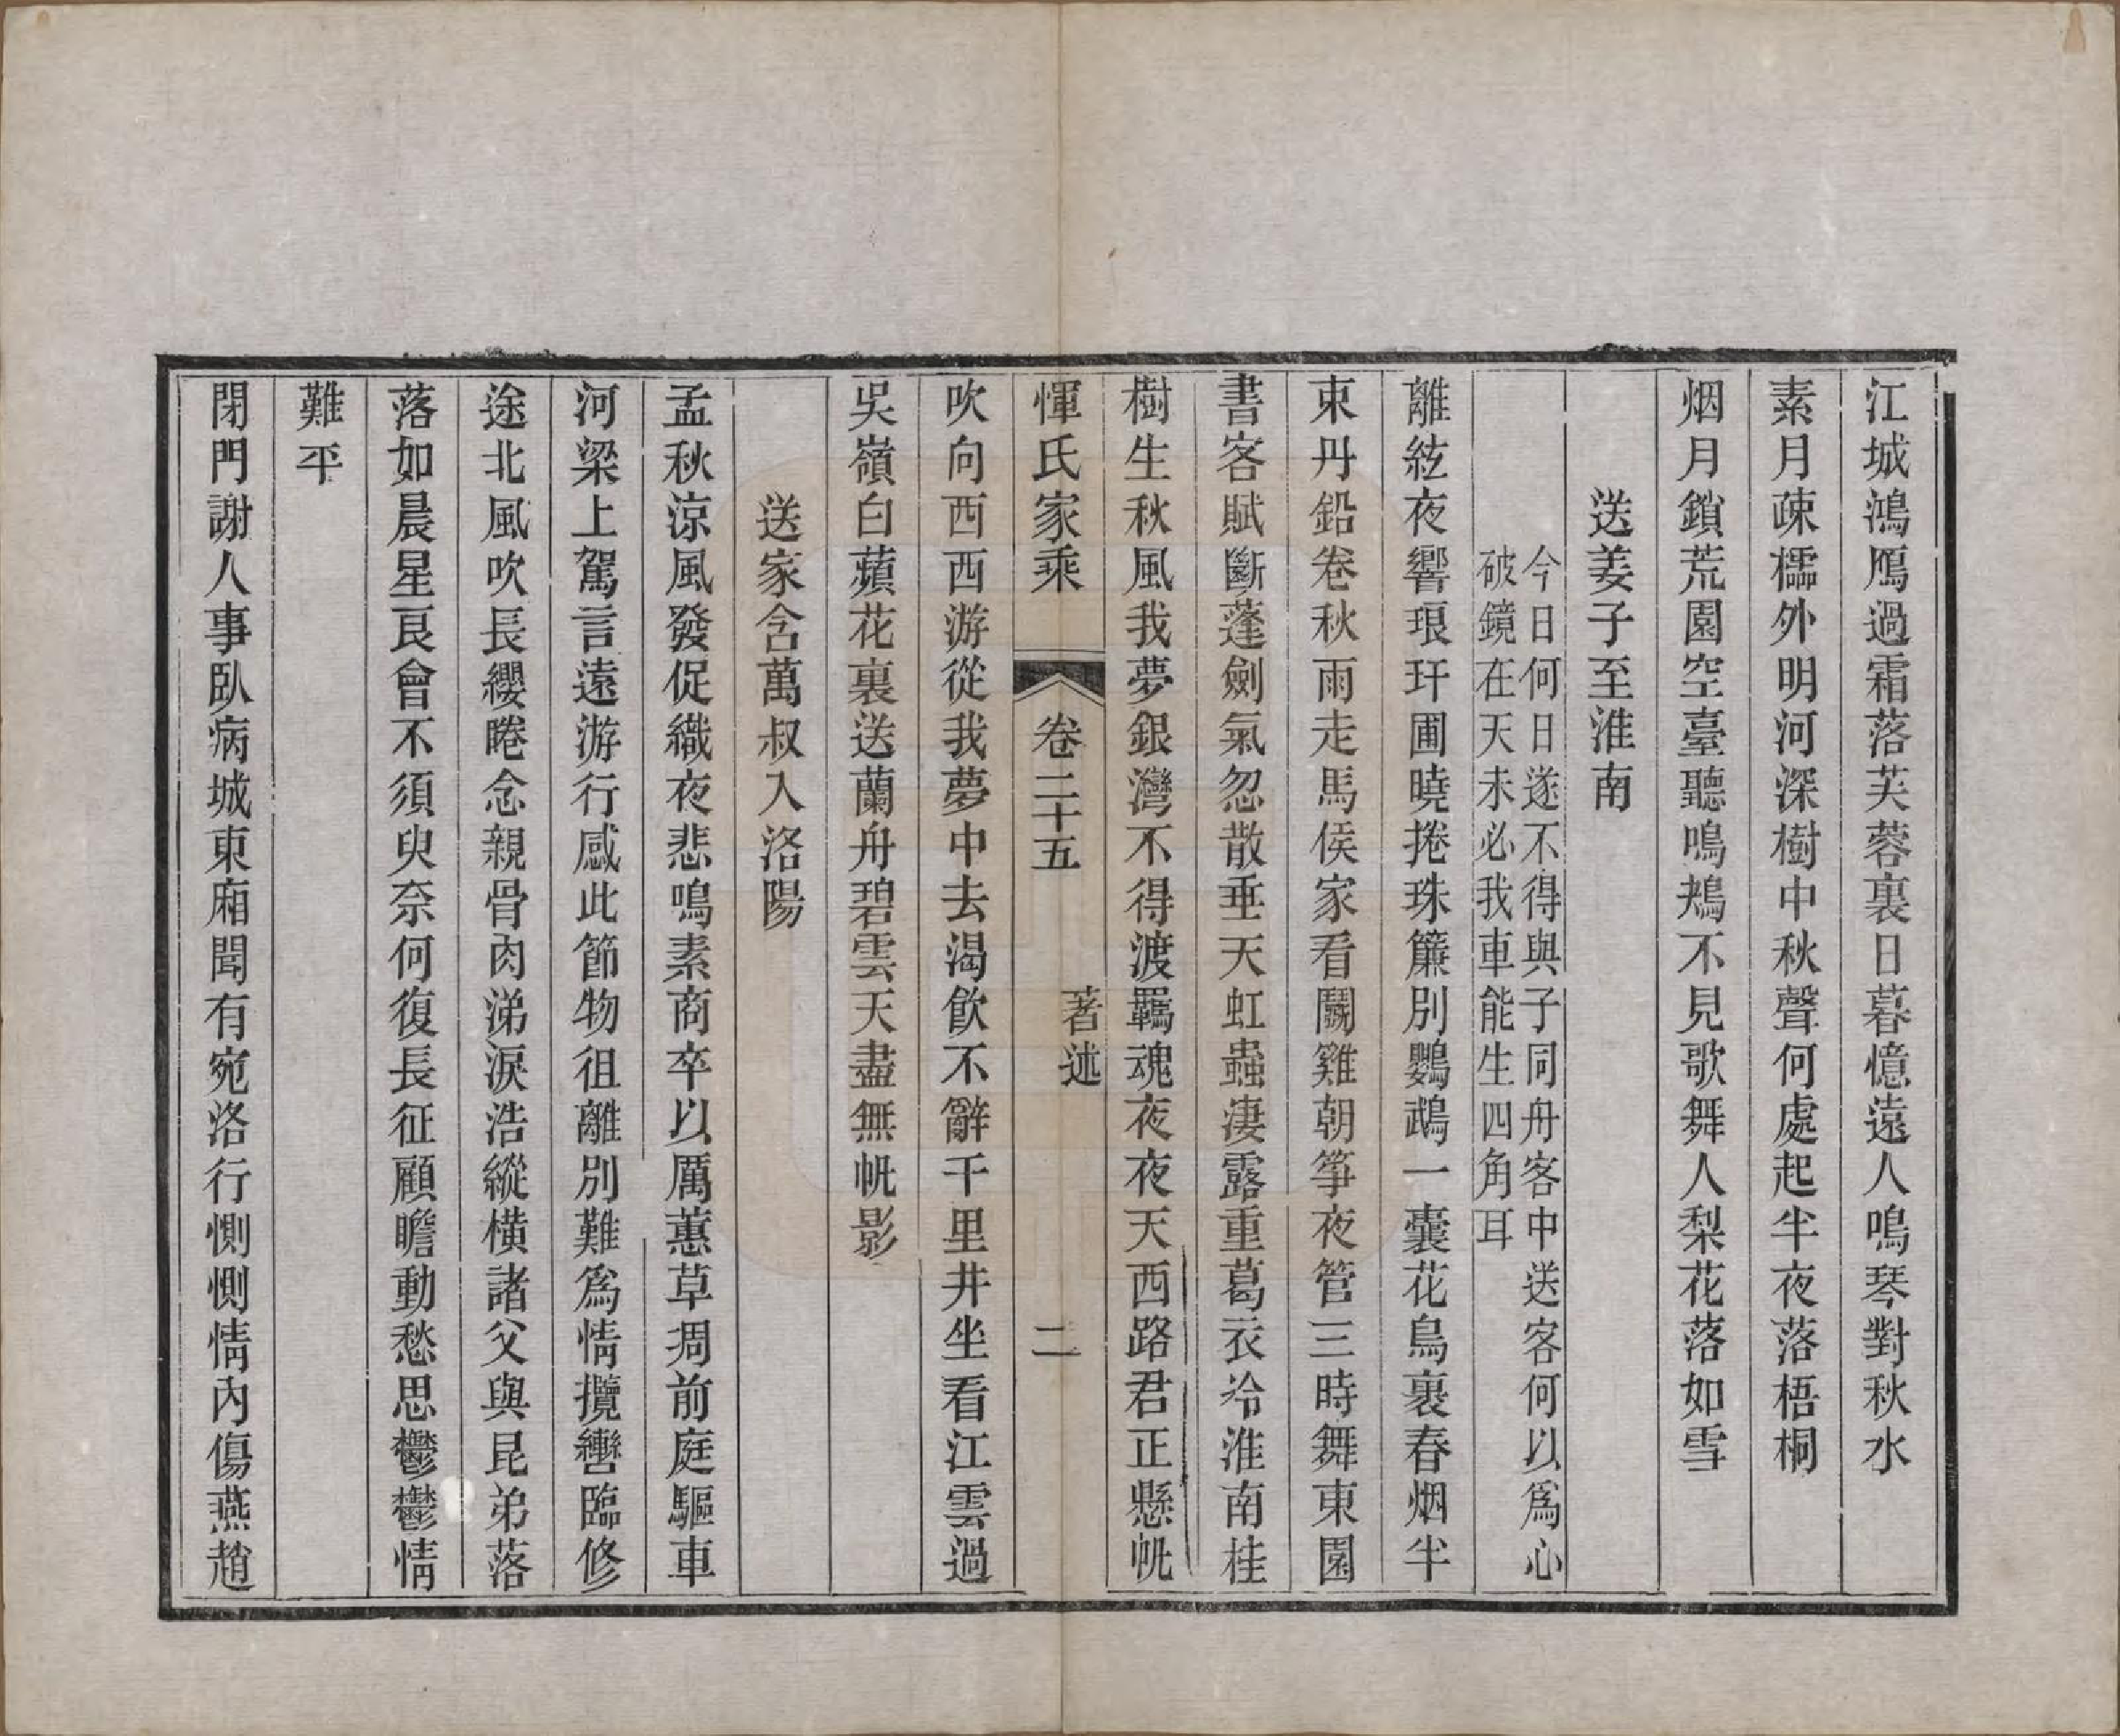 江城鴻鴈過霜落芙蓉裏日暮憶遠人鳴琴對秋水
素月疎櫺外明河深樹中秋聲何處起半夜落梧桐
烟月鎖荒園空臺聽鳴鵊不見歌舞人梨花落如雪
送姜子至淮南
今日何日遂不得與子同舟客中送客何以爲心
破鏡在天未必我車能生四角耳
離絃夜響琅玕圃曉捲珠簾別鸚鵡一囊花鳥裏春烟半
束丹鉛卷秋雨走馬侯家看鬭雞朝箏夜管三時舞東園
書客賦斷蓬劍氣忽散垂天虹蟲淒露重葛衣冷淮南桂
樹生秋風我夢銀灣不得渡羈魂夜夜天西路君正懸帆
惲氏家乘 卷二十五 著述 二
吹向西西游從我夢中去渴飲不辭千里井坐看江雲過
吳嶺白蘋花裏送蘭舟碧雲天盡無帆影
送家含萬叔入洛陽
孟秋涼風發促織夜悲鳴素商卒以厲蕙草凋前庭驅車
河梁上駕言遠游行感此節物徂離別難爲情攬轡臨修
途北風吹長纓睠念親骨肉涕淚浩縱橫諸父與昆弟落
落如晨星良會不須臾奈何復長征顧瞻動愁思鬱鬱情
難平
閉門謝人事臥病城東廂聞有宛洛行惻惻情內傷燕趙